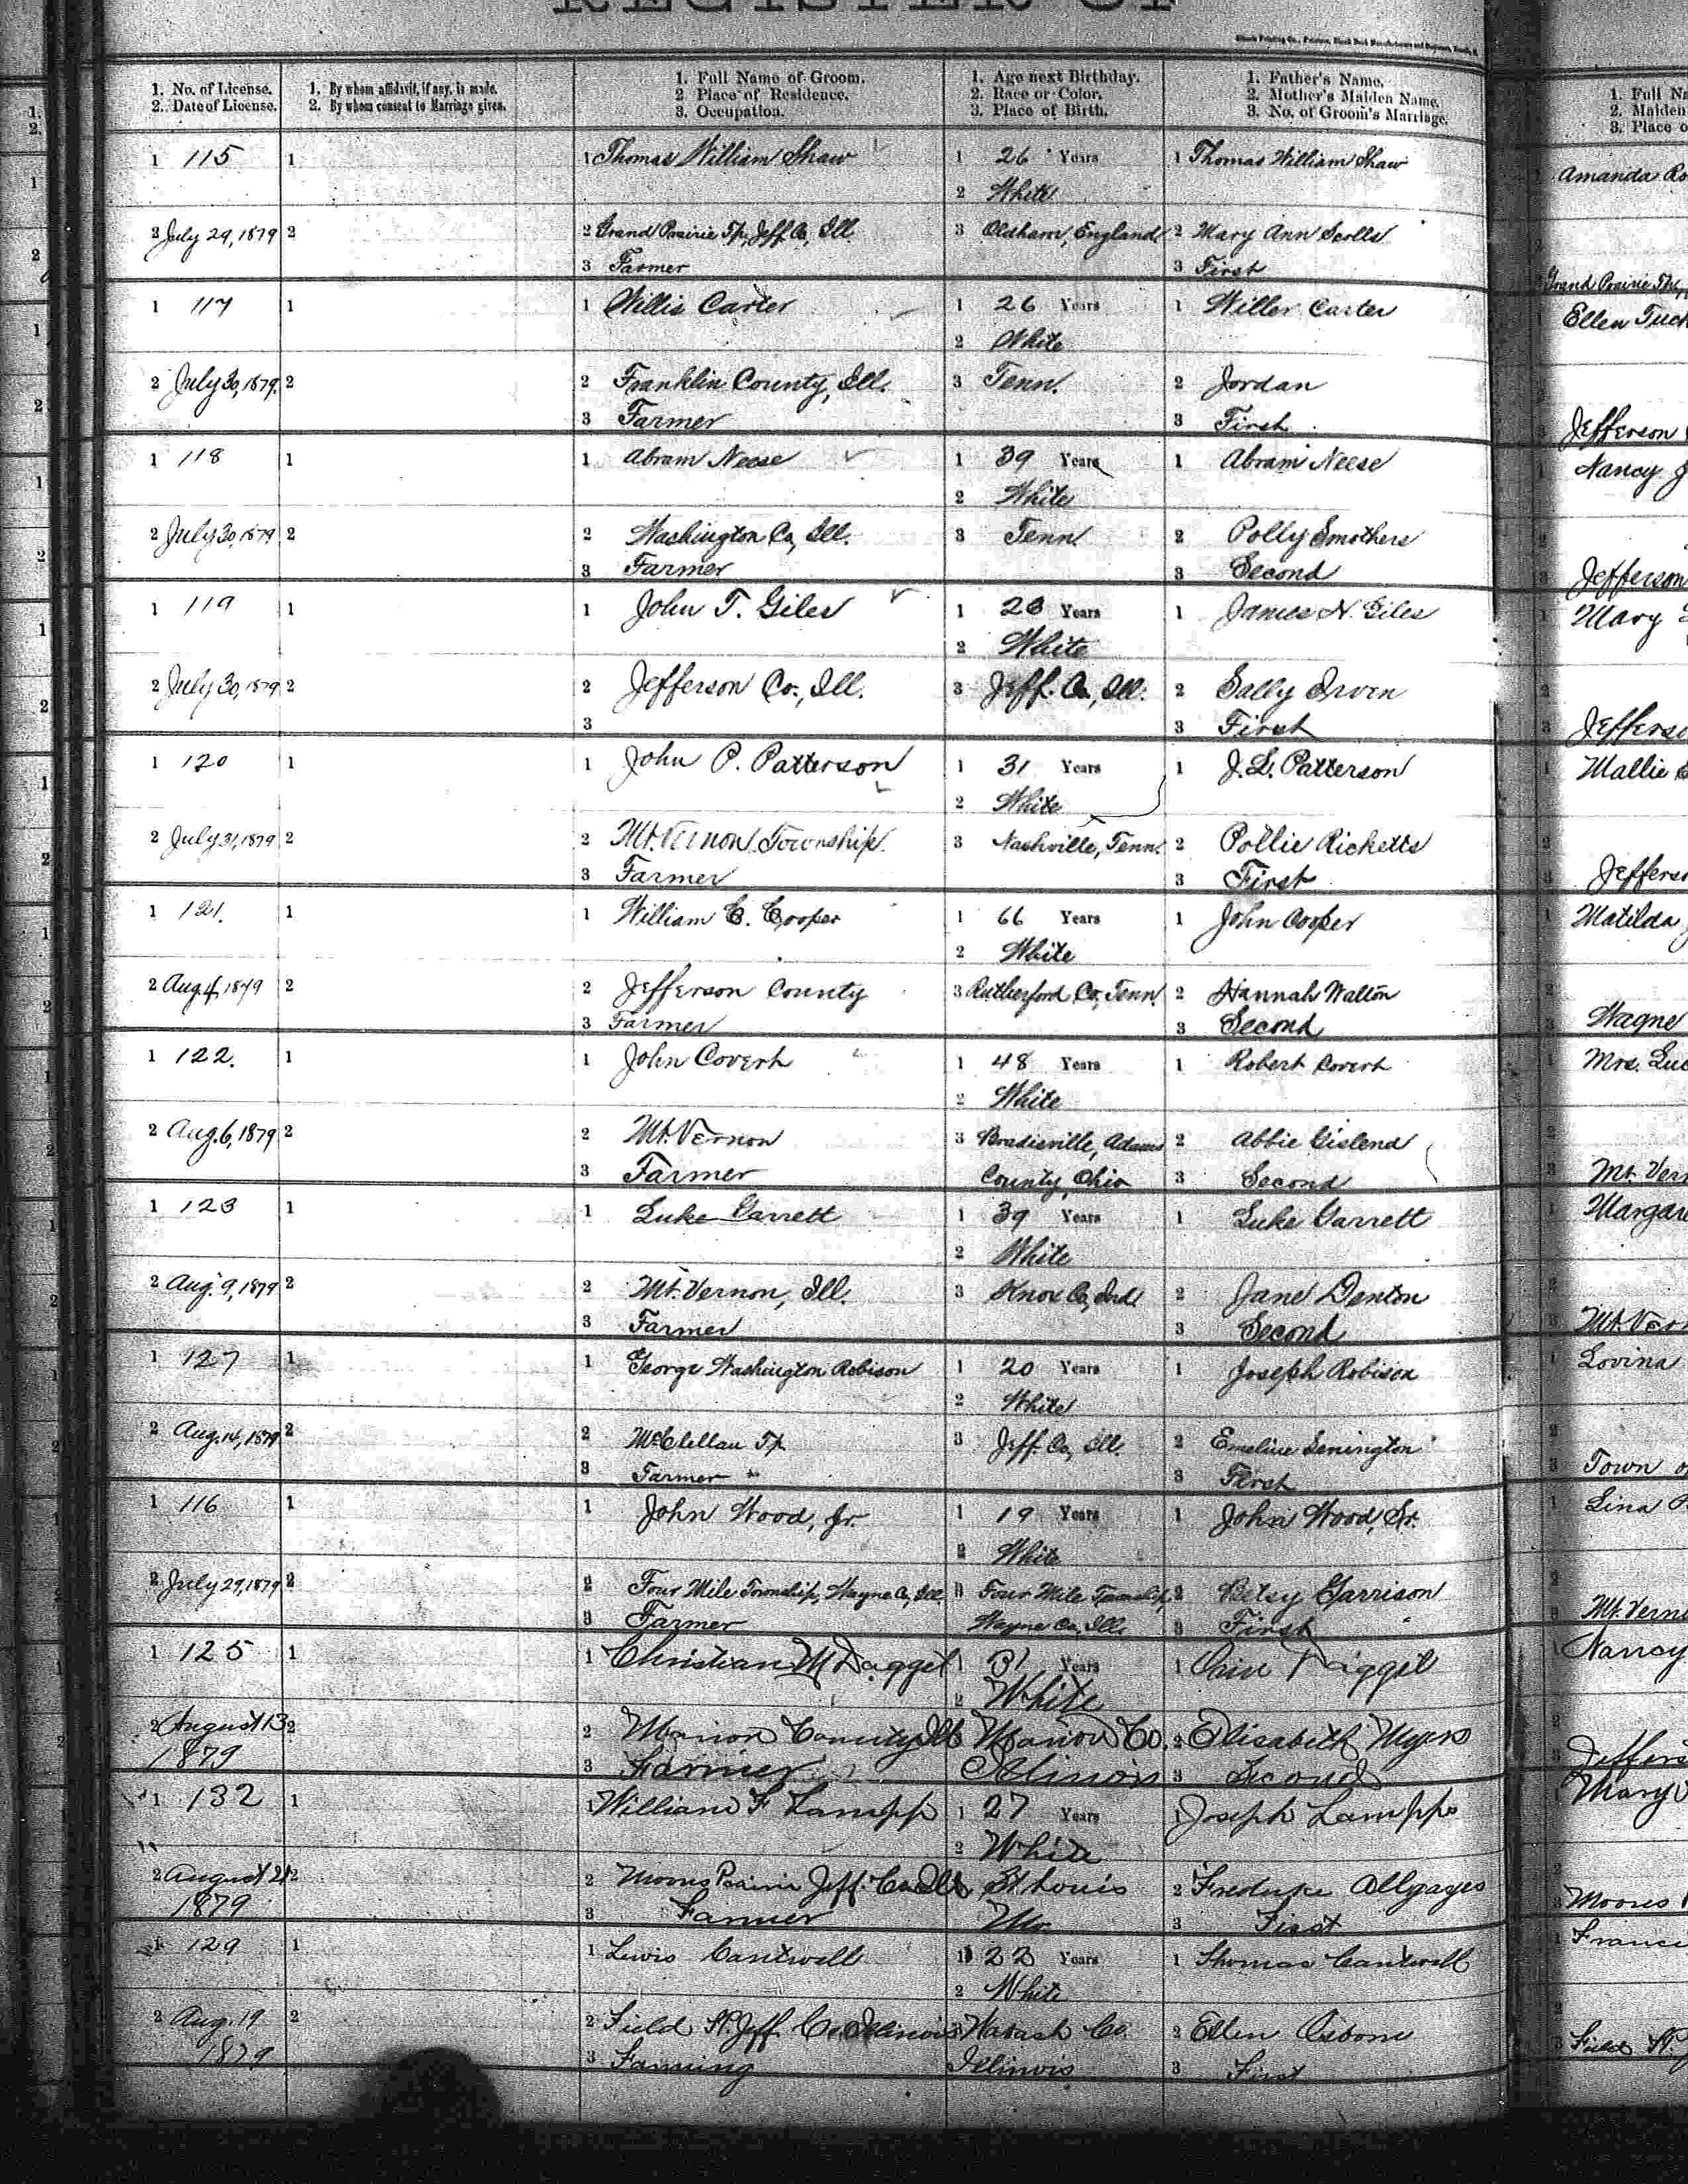 REGISTER OF
1. No. of License.
2. Date of License.
1. By whom affidavit, if any, is made.
2. By whom consent to Marriage given.
1. Full Name of Groom.
2 Place of Residence.
3. Occupation.
1. Age next Birthday.
2. Race or Color.
3. Place of Birth.
1. Father's Name.
2. Mother's Maiden Name.
3. No. of Groom's Marriage.
1. Full Na
2. Maiden
3. Place o
1 115 1 1 Thomas William Shaw 1 26 Years 1 Thomas William Shaw Amanda Ro
2 White
2 July 29, 1879 2 2 Grand Prairie Tp, Jeff. Co, Ill. 3 Oldham, England. 2 Mary Ann Scolls
3 Farmer 3 First Grand Prairie
1 117 1 1 Willis Carter 1 26 Years 1 Willer Carter Ellen Tuck
2 White
2 July 30, 1879. 2 2 Franklin County, Ill. 3 Tenn. 2 Jordan
3 Farmer 3 First Jefferson
1 118 1 1 Abram Neese 1 39 Years 1 Abram Neese Nancy J
2 White
2 July 30, 1879 2 2 Washington Co, Ill. 3 Tenn. 2 Polly Smothers
3 Farmer 3 Second Jefferson
1 119 1 1 John T. Giles 1 23 Years 1 James N. Giles Mary
2 White
2 July 30, 1879 2 2 Jefferson Co., Ill. 3 Jeff. Co, Ill. 2 Sally Irvin
3 3 First Jefferso
1 120 1 1 John P. Patterson 1 31 Years 1 J. L. Patterson Mallie
2 White
2 July 31, 1879 2 2 Mt. Vernon Township 3 Nashville, Tenn. 2 Pollie Ricketts
3 Farmer 3 First Jefferso
1 121. 1 1 William C. Cooper 1 66 Years 1 John Cooper Matilda
2 White
2 Aug. 4, 1879 2 2 Jefferson County 3 Rutherford Co, Tenn. 2 Hannah Walton
3 Farmer 3 Second Wayne
1 122. 1 1 John Covert 1 48 Years 1 Robert Covert Mrs. Luc
2 White
2 Aug. 6, 1879 2 2 Mt. Vernon 3 Bradisville, Adams 2 Abbie Gislend
3 Farmer County, Ohio 3 Second Mt. Vern
1 123 1 1 Luke Garrett 1 39 Years 1 Luke Garrett Margare
2 White
2 Aug. 9, 1879 2 2 Mt. Vernon, Ill. 3 Knox Co, Ind. 2 Jane Denton
3 Farmer 3 Second Mt. Ver
1 127 1 1 George Washington Robison 1 20 Years 1 Joseph Robison Lovina
2 White
2 Aug. 14, 1879 2 2 McClellan Tp. 3 Jeff. Co, Ill. 2 Emeline Senington
3 Farmer 3 First Town o
1 116 1 1 John Wood, Jr. 1 19 Years 1 John Wood, Sr. Lina
2 White
2 July 29, 1879 2 2 Four Mile Township, Wayne Co, Ill. 3 Four Mile Township, 2 Betsy Garrison
3 Farmer Wayne Co, Ill. 3 First Mt. Verno
1 125 1 1 Christian M Daggel 1 31 Years 1 Nancy
2 White
2 August 13 2 2 Marion County Ill Marion Co. 2 Elisabeth Myers
1879 3 Farmer Illinois 3 Second Jeffers
1 132 1 1 William F Lampp 1 27 Years 1 Joseph Lampp Mary
2 White
2 August 21 2 2 Moores Prairie Jeff. Co. Ill St Louis 2
1879 3 Farmer Mo. 3 First Moores
1 129 1 1 Lewis Cantwell 1 22 Years 1 Thomas Cantwell Franci
2 White
2 Aug. 19 2 2 Field Tp. Jeff. Co. Illinois Wabash Co. 2 Ellen Osborn
1879 3 Farming Illinois 3 First Field